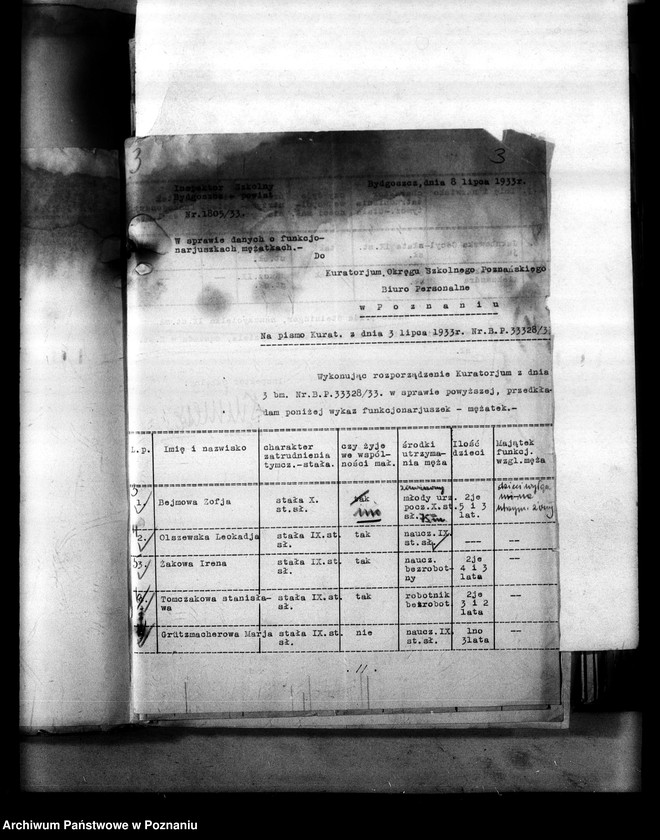 3 3
Inspektor Szkolny Bydgoszcz, dnia 8 lipca 1933r.
Nr.1805/33.
W sprawie danych o funkcjo-
narjuszkach mężatkach.-
Do
Kuratorjum Okręgu Szkolnego Poznańskiego
Biuro Personalne
w P o z n a n i u
Na pismo Kurat. z dnia 3 lipca 1933r. Nr.B.P.33328/3
Wykonując rozporządzenie Kuratorjum z dnia
3 bm. Nr.B.P.33328/33. w sprawie powyższej, przedkła-
dam poniżej wykaz funkcjonarjuszek - mężatek.-
L.p. Imię i nazwisko charakter zatrudnienia tymcz.-stała. czy żyje we wspól- ności mał. środki utrzyma- nia męża Ilość dzieci Majątek funkcj. wzgl.męża
1. Bejmowa Zofja stała X. st.sł. tak młody urz. pocz.X.st. sł. 2je 5 i 3 lat.
2. Olszewska Leokadja stała IX.st. sł. tak naucz.IX. st.sł. --- --
3. Żakowa Irena stała IX.st. sł. tak naucz. bezrobot- ny 2je 4 i 3 lata --
Tomczakowa Stanisła- wa stała IX.st. sł. tak robotnik bezrobot 2je 3 i 2 lata --
Grützmacherowa Marja stała IX.st. sł. nie naucz.IX. st.sł. 1no 3lata --
Archiwum Państwowe w Poznaniu